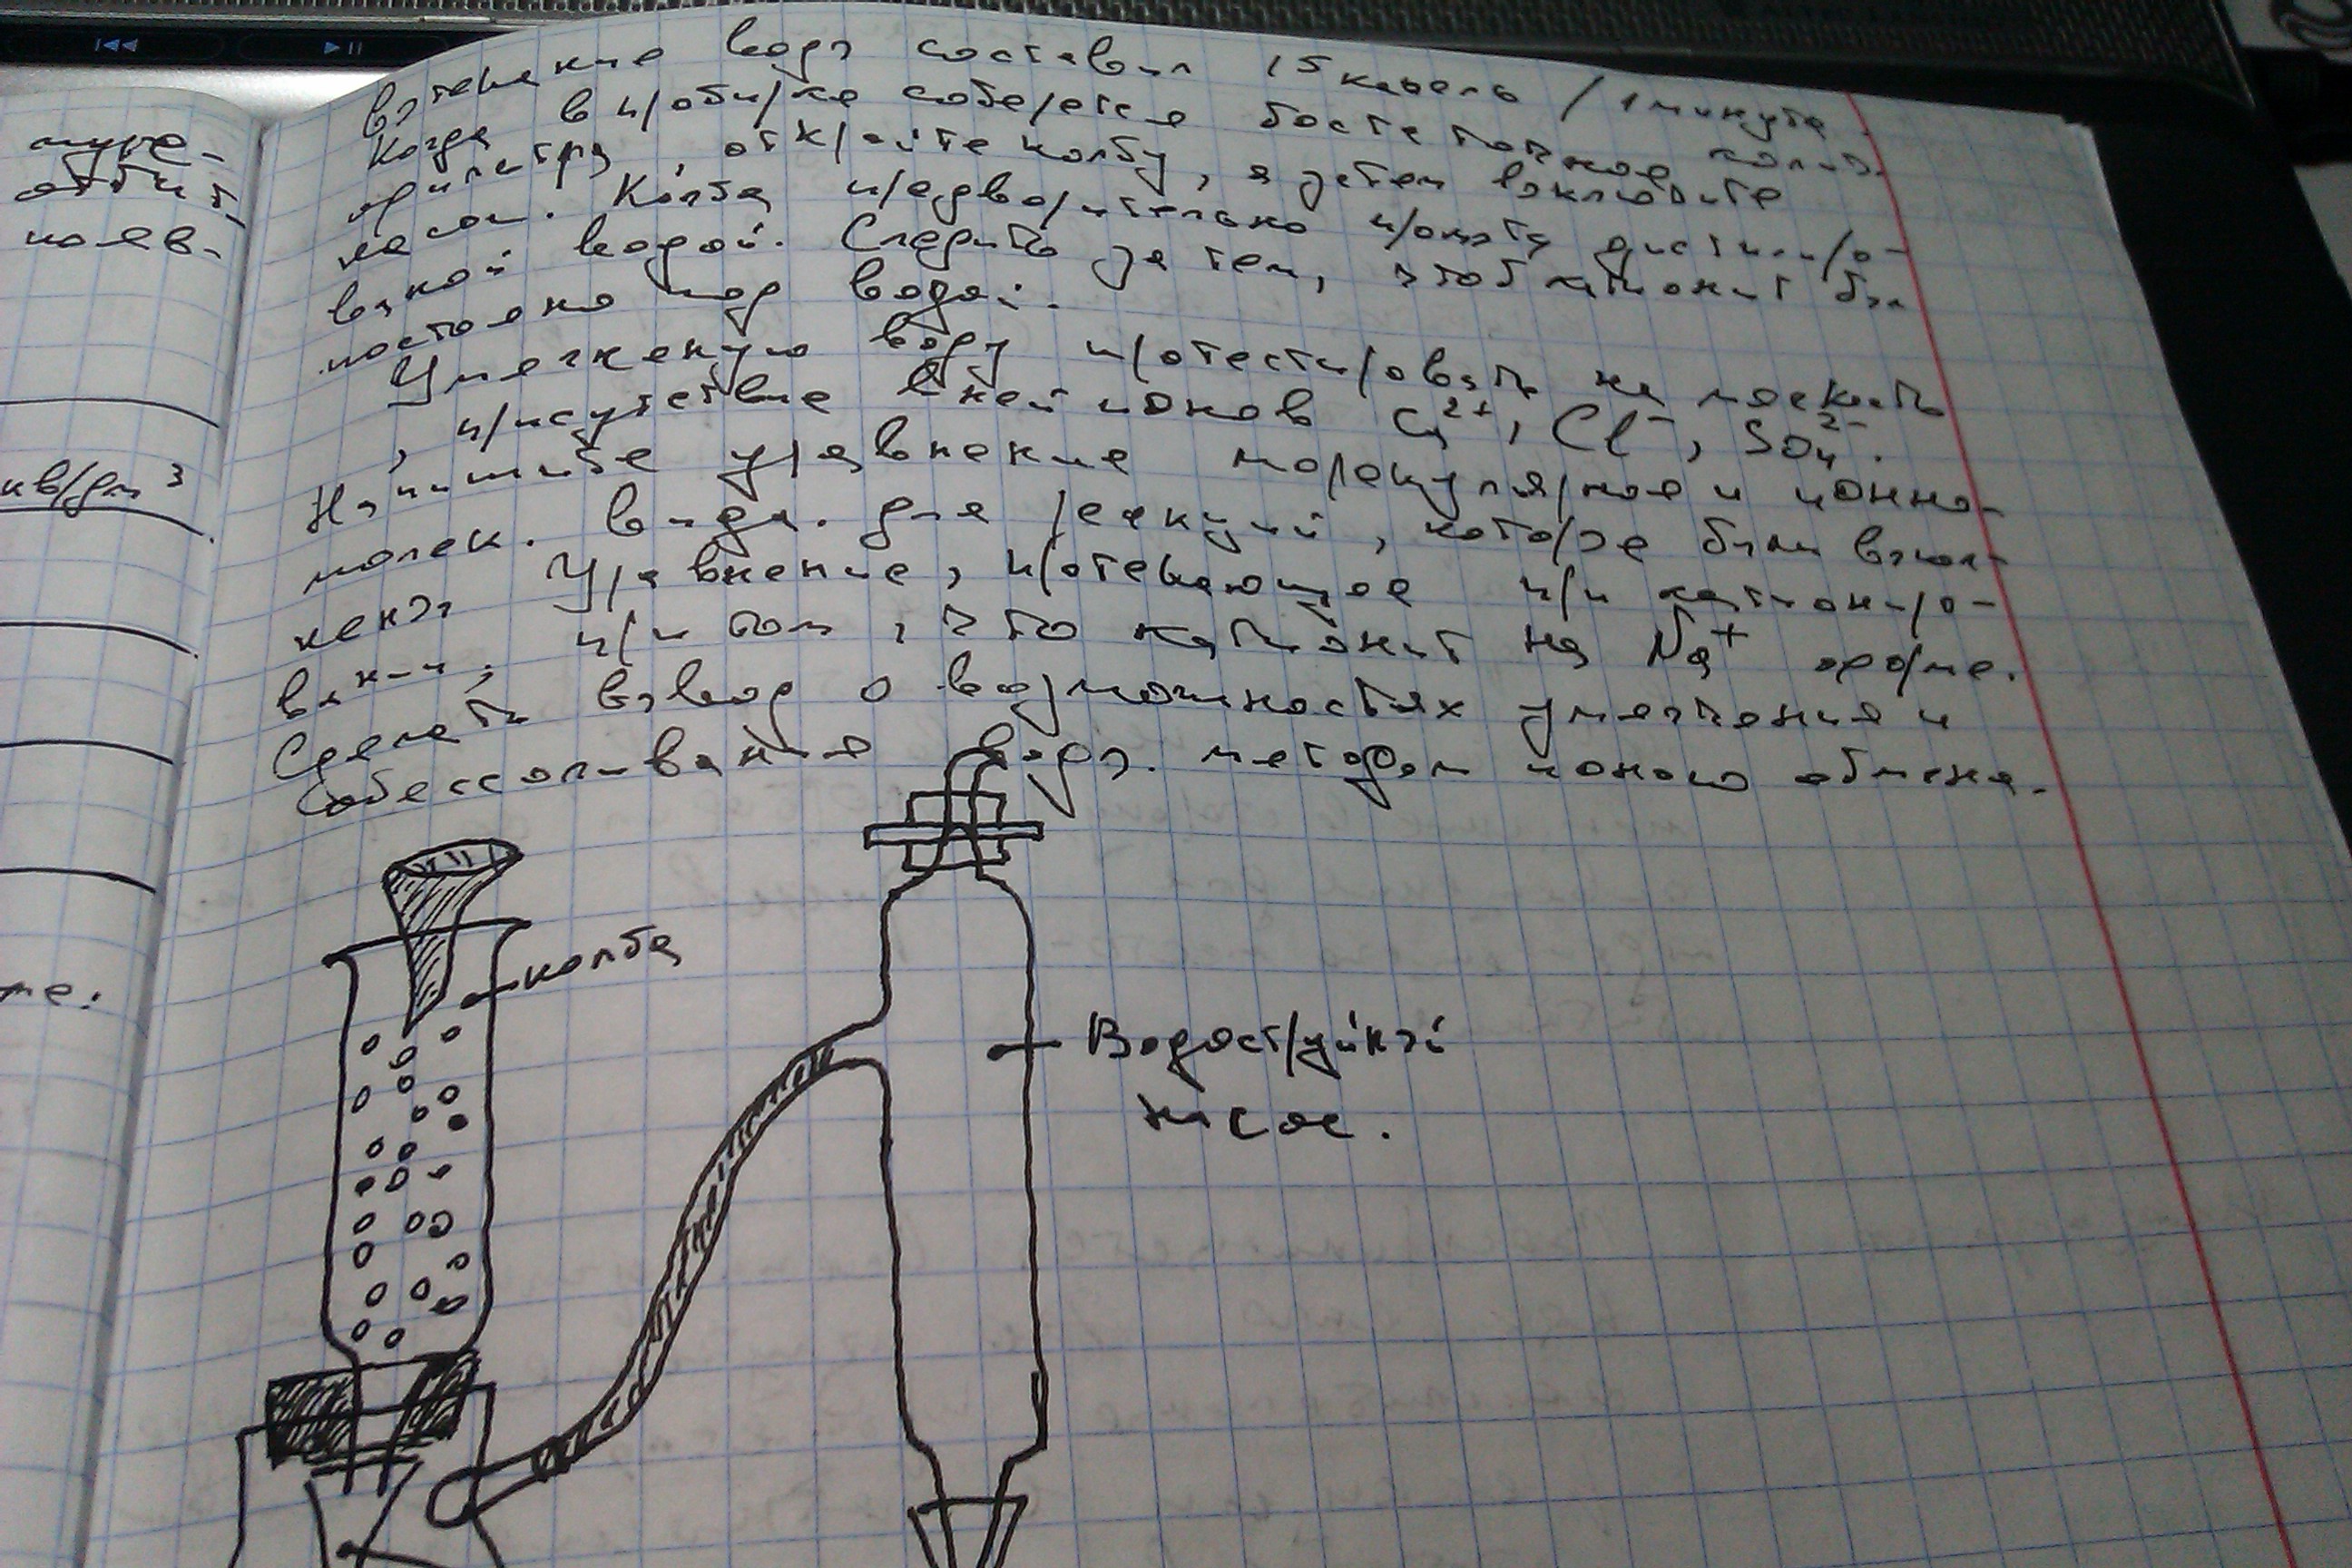 муře-
обbит.
молев-
кв/дм³
ме:
вытекание воды составил 15 капель / 1 минута.
Когда в пробирке соберется достаточное колич.
фильтра, откройте колбу, а затем выключите
насос. Колба предварительно промыта дистилиро-
ваной водой. Следить за тем, чтоб катионит был
постояно под водой.
Умягченую воду протестировать на мягкость
, присутствие в ней ионов Ca²⁺, Cl⁻, SO₄²⁻.
Напишите уравнение молекулярное и ионно-
молек. вида. для реакций, которые были выпол-
нены Уравнение, протекающее при катиониро-
вании, при том, что катионит на Na⁺ форме.
Сделать вывод о возможностях умягчения и
обессоливания воды. методом ионого обмена.
колба
Водоструйный
насос.